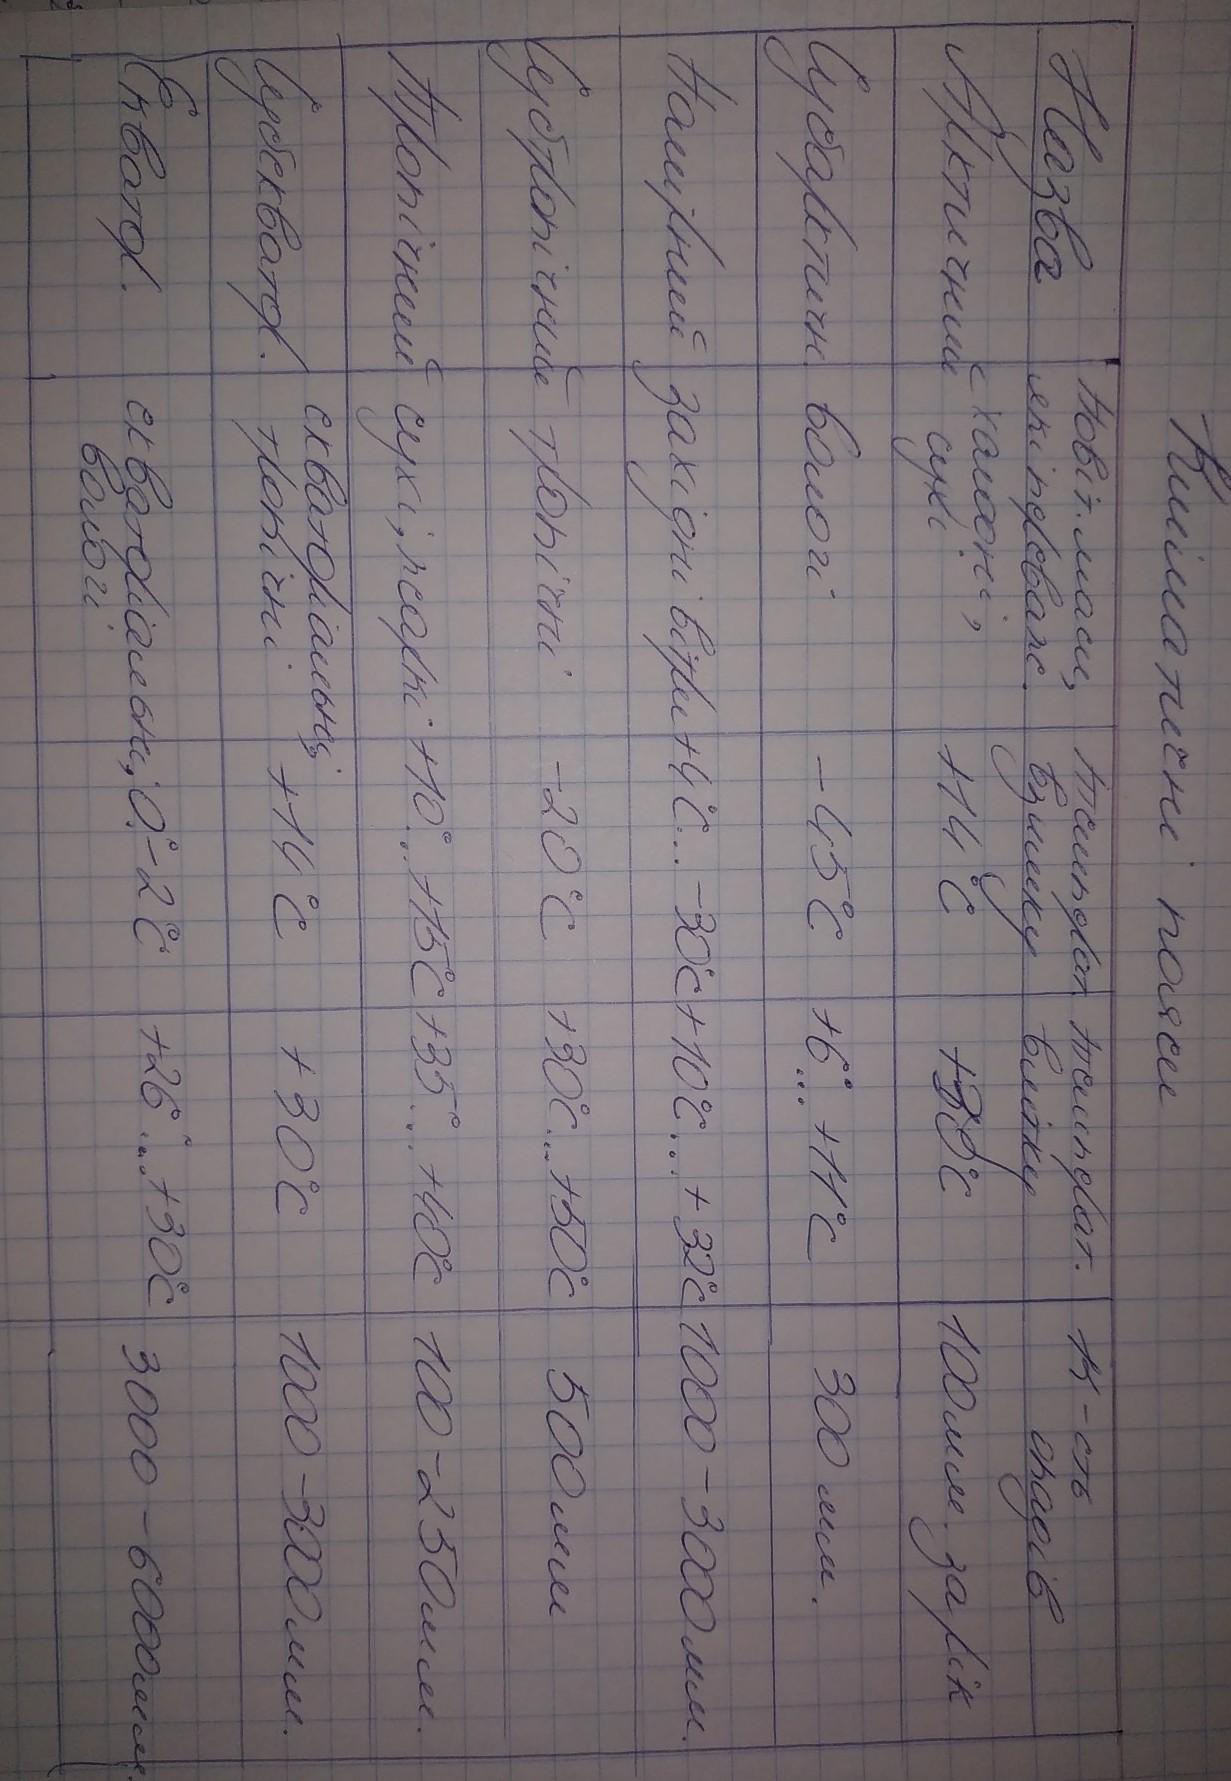 Кліматичні пояси
Назва Повіт. маси, які преоваж. температ. взимку температ. влітку к-сть опадів
Арктичний холодні, сухі +14°C +30°C 100 мм за рік
Субарктичн вологі -45°C +6°...+11°C 300 мм.
Помірний західні вітри +4°C...-30°C +10°C...+32°C 1000-3000 мм.
Субтропічний тропічні -20°C +30°C...+50°C 500 мм
Тропічний сухі, жаркі +10°...+15°C +35°...+40°C 100-250 мм.
Субекватор. екваторіальні, тропічні +14°C +30°C 1000-3000 мм.
Екватор. екваторіальні, вологі 0°-2°C +26°...+30°C 3000-6000 мм.